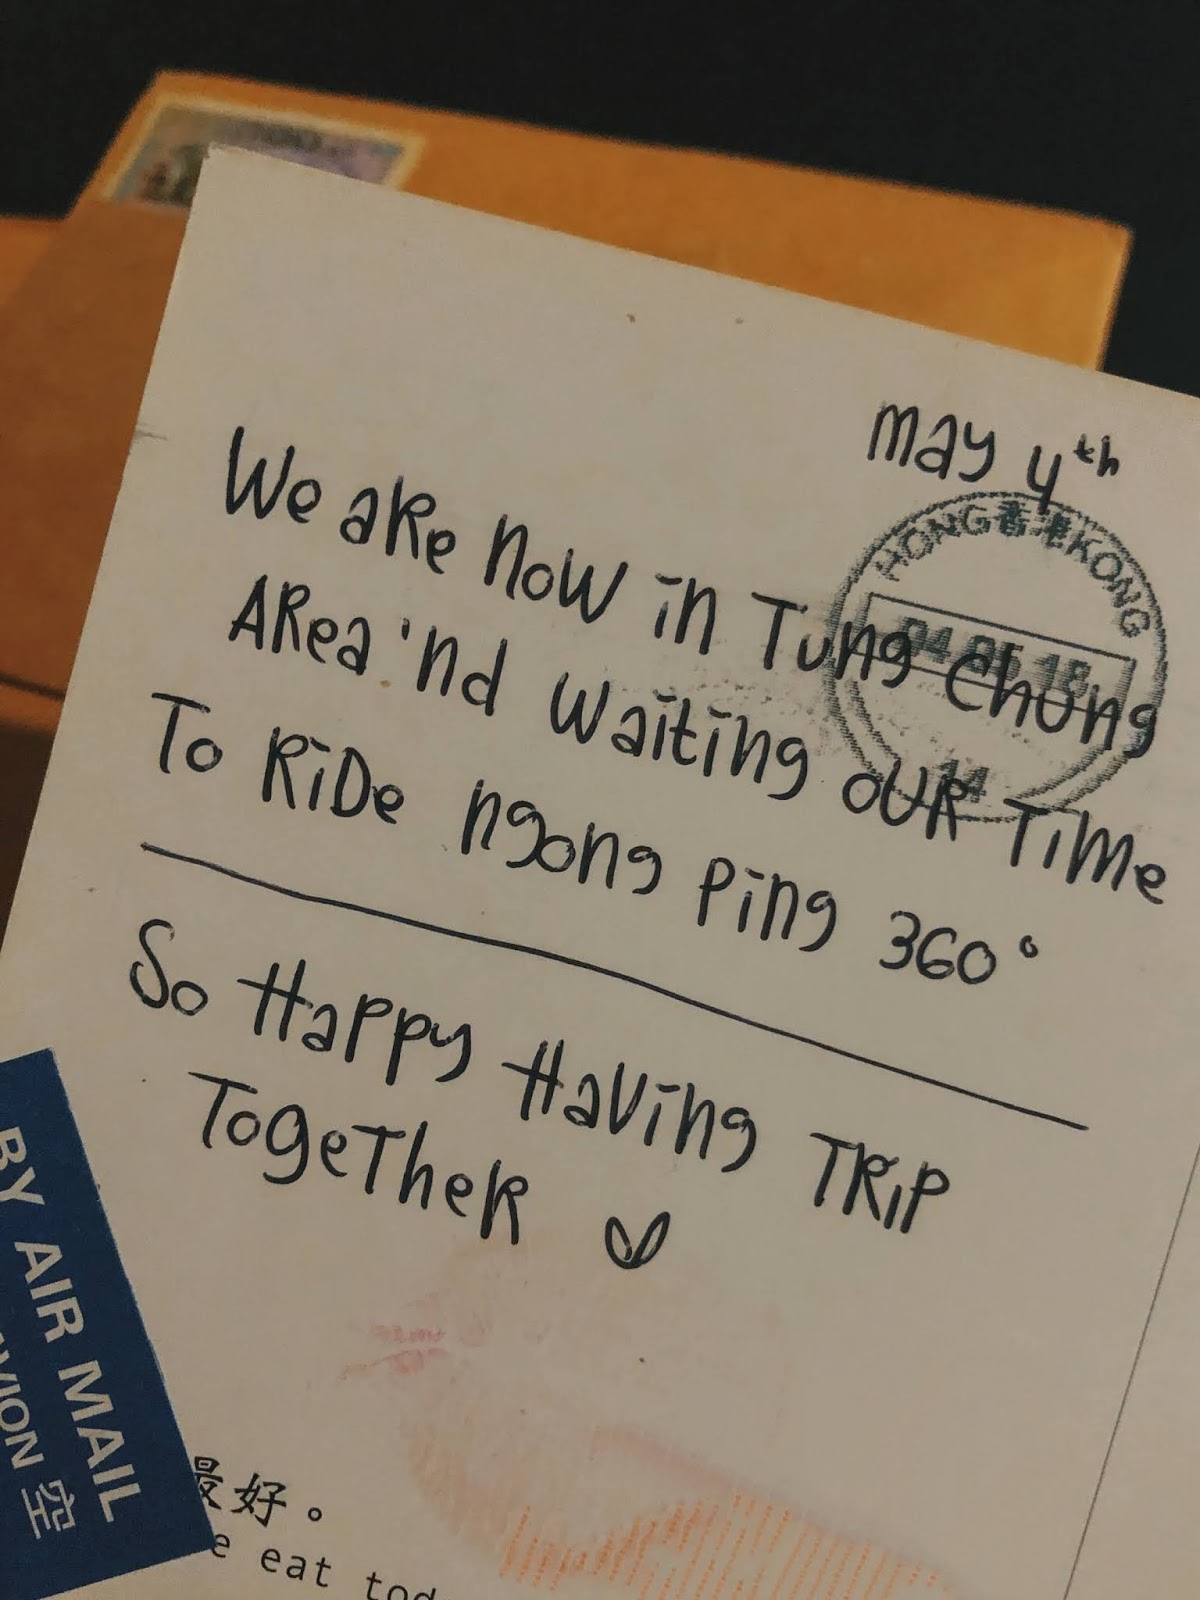 May 4th
HONG香港KONG
14
We are now in Tung Chung
Area 'nd waiting our time
To Ride ngong ping 360°
So Happy Having TRiP
TogeTheR
BY AIR MAIL
VION 空
最好。
e eat tod